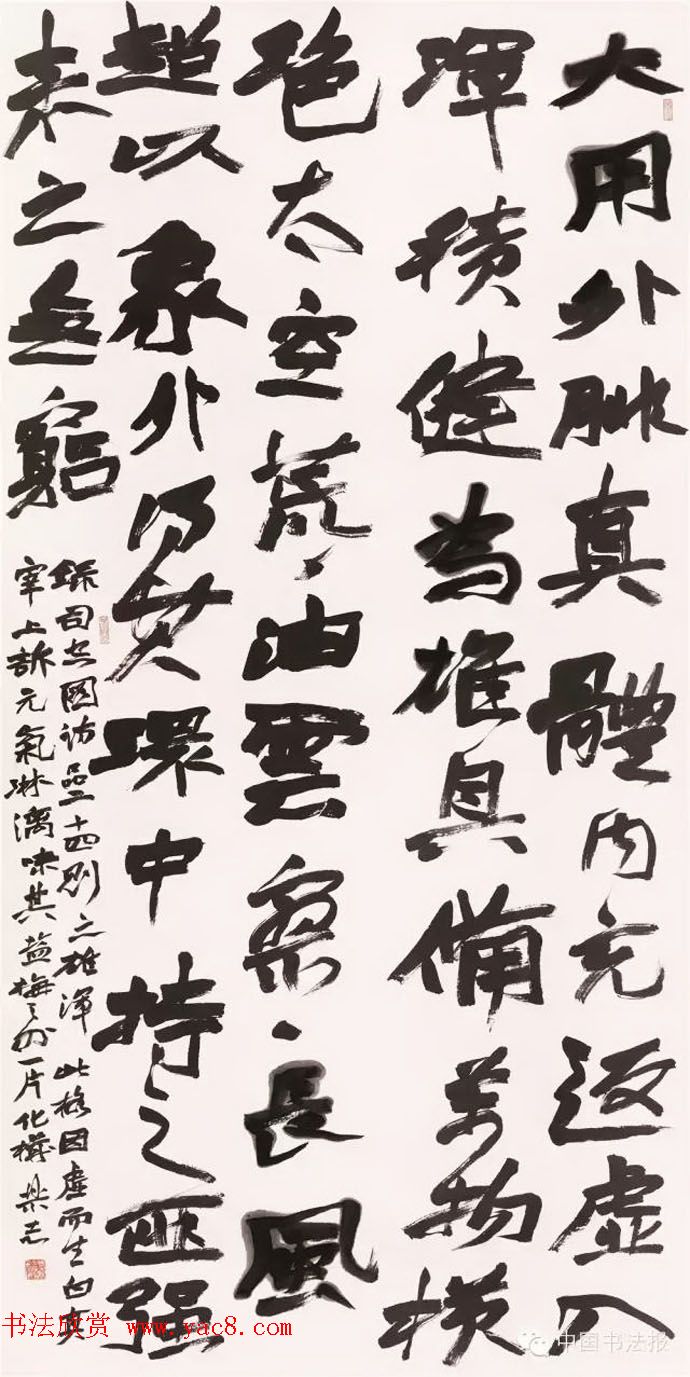 大用外腓真體内充返虚入
渾積健為雄具備萬物横
絶太空荒〻油雲寥〻長風
超以象外得其環中持之匪强
来之無窮
録司空圖詩品二十四則之雄渾 此格因虚而生白真
宰上訴元氣淋漓味其盐梅之外一片化機
书法欣赏 www.yac8.com
中国书法报